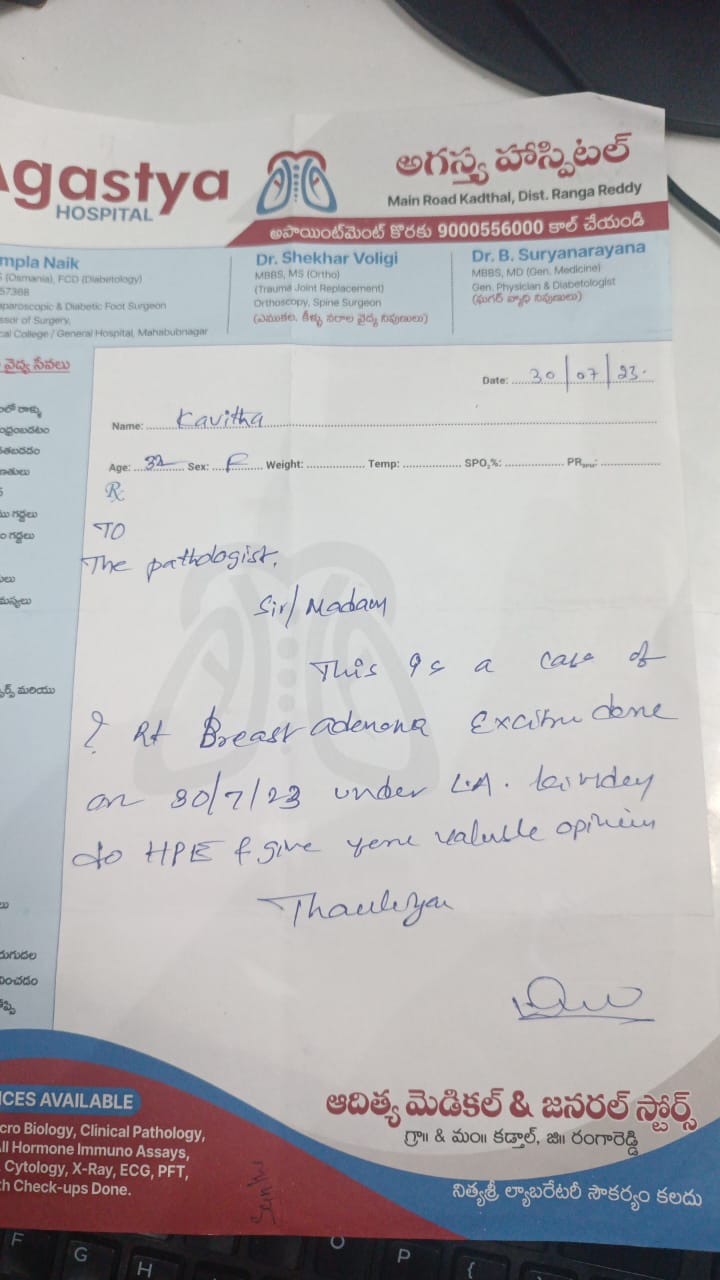 Agastya
HOSPITAL
అగస్త్య హాస్పిటల్
Main Road Kadthal, Dist. Ranga Reddy
అపాయింట్‌మెంట్ కొరకు 9000556000 కాల్ చేయండి
mpla Naik
(Osmania), FCD (Diabetology)
57368
aparoscopic & Diabetic Foot Surgeon
ssor of Surgery,
cal College / General Hospital, Mahabubnagar
Dr. Shekhar Voligi
MBBS, MS (Ortho)
(Trauma Joint Replacement)
Orthoscopy, Spine Surgeon
(ఎముకల, కీళ్ళు నరాల వైద్య నిపుణులు)
Dr. B. Suryanarayana
MBBS, MD (Gen. Medicine)
Gen. Physician & Diabetologist
(షుగర్ వ్యాధి నిపుణులు)
వైద్య సేవలు
Date: 30/07/23.
Name: Kavitha
Age: 32 Sex: F Weight: Temp: SPO₂%: PR
Rx
TO
The pathologist.
Sir/Madam
This is a case of
? Rt Breast adenona Excition done
on 30/7/23 under L.A. kindey
do HPE & give yene valuble opinion
Thankyou
CES AVAILABLE
cro Biology, Clinical Pathology,
ll Hormone Immuno Assays,
Cytology, X-Ray, ECG, PFT,
h Check-ups Done.
ఆదిత్య మెడికల్ & జనరల్ స్టోర్స్
గ్రా॥ & మం॥ కడ్తాల్, జి॥ రంగారెడ్డి
నిత్యశ్రీ ల్యాబరేటరీ సౌకర్యం కలదు
F
G
H
O
P
{